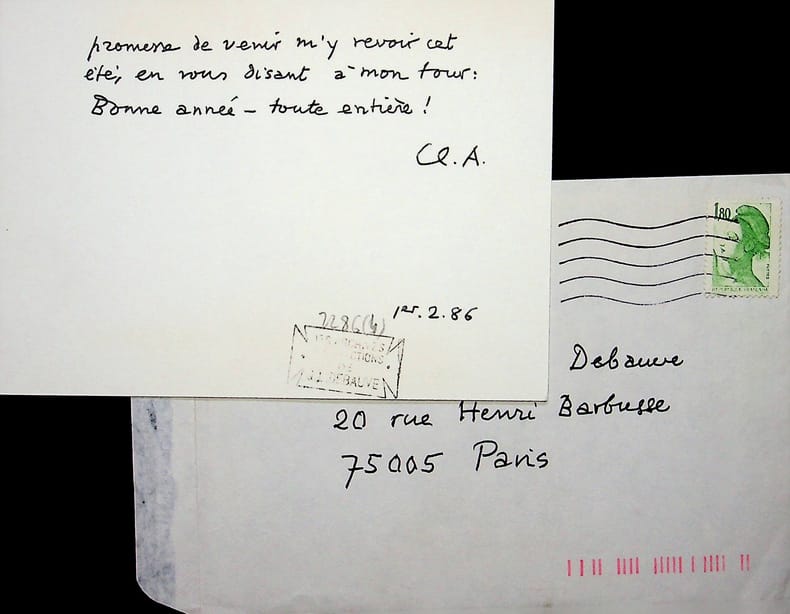 promesse de venir m'y revoir cet
été, en vous disant à mon tour:
Bonne année – toute entière !
Cl. A.
1er. 2. 86
7286(4)
COLLECTIONS
DE
J.L. DEBAUVE
1,80
REPUBLIQUE FRANÇAISE
Debauve
20 rue Henri Barbusse
75005 Paris